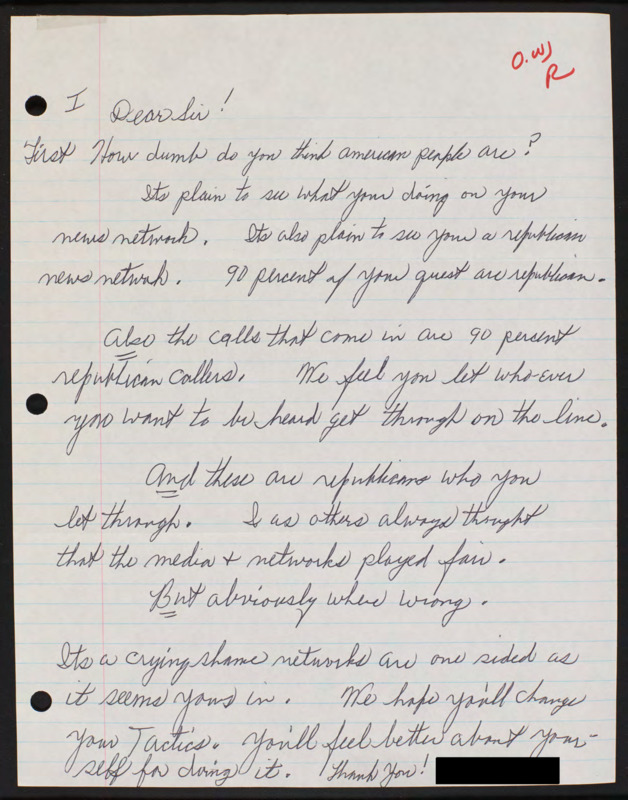 O.W)
R
I Dear Sir!
First How dumb do you think american people are?
Its plain to see what your doing on your
news network. Its also plain to see your a republican
news network. 90 percent of your guest are republican.
Also the calls that come in are 90 percent
republican callers. We feel you let who-ever
you want to be heard get through on the line.
And these are republicans who you
let through. I as others always thought
that the media & networks played fair.
But abviously where wrong.
Its a crying shame networks are one sided as
it seems yours in. We hope you'll change
your Tactics. You'll feel better about your-
self for doing it. Thank You!